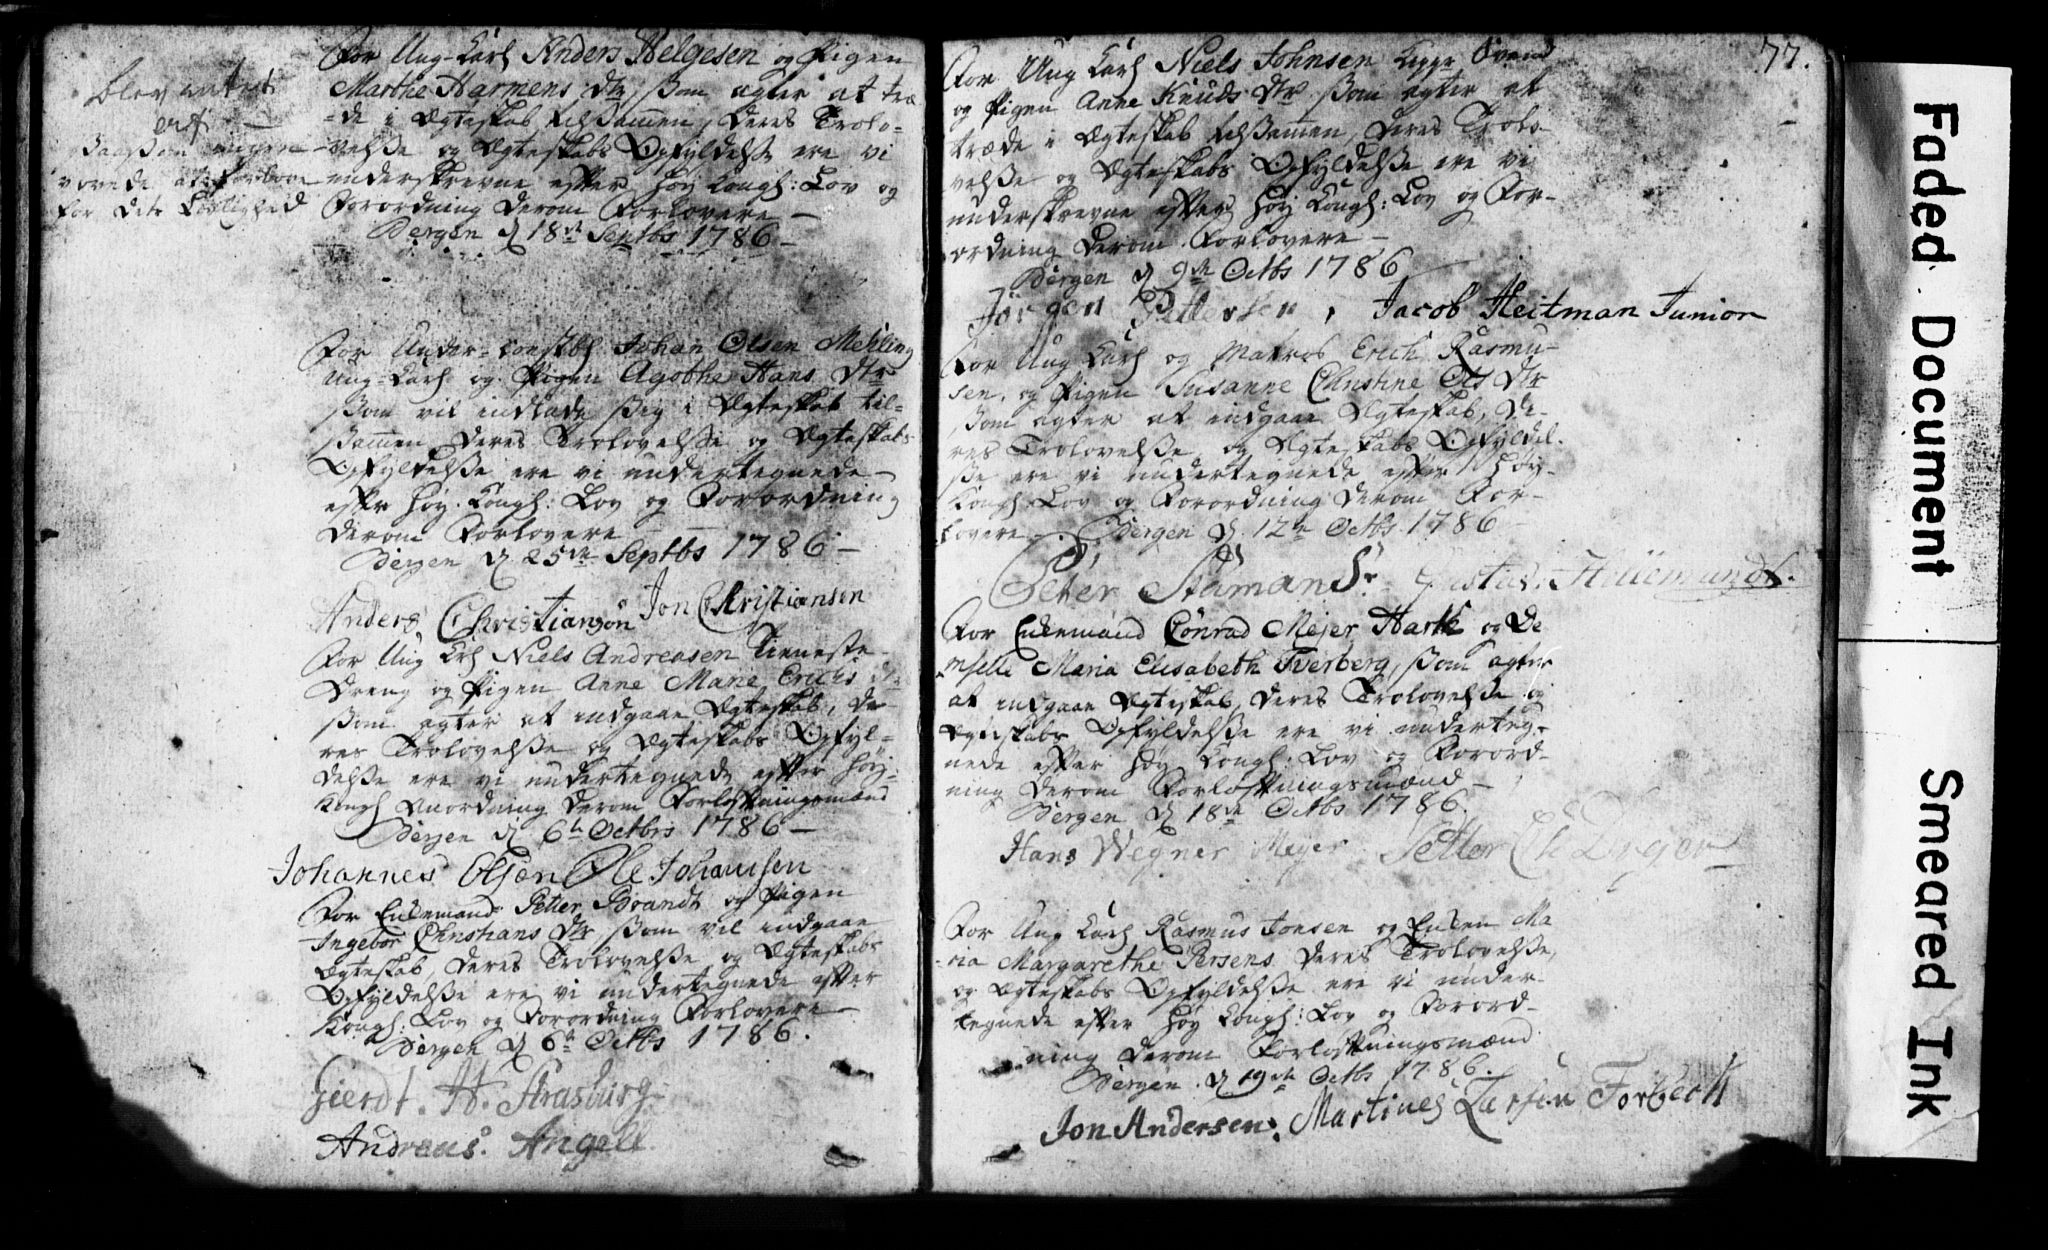 blev
for dets Lovlighed
For Ung-Karl Anders Helgesen og Pigen
Marthe Harmens dtr, som agter at træ
=de i Ægteskab tilsammen, deres Trolo-
velse og Ægteskabs Opfyldelse ere vi
underskrevne efter høy Kongl: Lov og
Forordning derom Forlovere —
Bergen d 18de Septbs 1786 —
For Under= Johan Olsen Mehling
Ung-Karl og Pigen Agothe Hans dtr
som vil indlade sig i Ægteskab til-
sammen, deres Trolovelse og Ægteskabs
Opfyldelse ere vi undertegnede
efter høy Kongl: Lov og Forordning
derom Forlovere
Bergen d 25de Septbs 1786 —
Anders Christiansøn Jon Christiansen
For Ung Karl Niels Andreasen tieneste-
dreng og Pigen Anne Marie Erichs dr
som agter at indgaae Ægteskab, de-
res Trolovelse og Ægteskabs Opfyl-
delse ere vi undertegnede efter høy-
Kongl Anordning derom Forlovtningsmænd
Bergen d 6te Octbris 1786 —
Johannes Olsen Ole Johansen
For Enkemand Petter Brandt og Pigen
Ingebor Christians dtr som vil indgaae
Ægteskab, deres Trolovelse og Ægteskabs
Opfyldelse ere vi undertegnede efter
Kongl: Lov og Forordning Forlovere
Bergen d 6te Octbs 1786.
Gierdt. H. Strasburg
Andreas Angell
77.
For Ung Karl Niels Johnsen
og Pigen Anne Knuds dtr som agter at
træde i Ægteskab tilsammen, deres Trolo-
velse og Ægteskabs Opfyldelse ere vi
underskrevne efter høy Kongl: Lov og For-
ordning derom Forlovere —
Bergen d 9de Octbs 1786
Jørgen Pettersen, Jacob Heitman Junior
For Ung Karl og Matros Erich Rasmu-
sen, og Pigen Susanne Christine Ols dtr
som agter at indgaae Ægteskab, de-
res Trolovelse og Ægteskabs Opfyldel-
se ere vi undertegnede efter høy-
Kongl Lov og Forordning derom For-
lovere — Bergen d 12te Octbs 1786
Peter Staman Sr
For Enkemand Conrad Mejer Hartk og De
mselle Maria Elisabeth Tverberg, som agter
at indgaae Ægteskab, deres Trolovelse og
Ægteskabs Opfyldelse ere vi underteg-
nede efter høy Kongl: Lov og Forord-
ning derom Forlovtningsmænd —
Bergen d 18de Octbs 1786.
Hans Wegner Meyer
For Ung Karl Rasmus Jonsen og Enken Ma
ria Margarethe Persens deres Trolovelse,
og Ægteskabs Opfyldelse ere vi under-
tegnede efter høy Kongl: Lov og Forord-
ning derom Forlovtningsmænd
Bergen d 19de Octbs 1786.
Jon Andersen. Martines Larsen Forbech
Faded Document
Smeared Ink